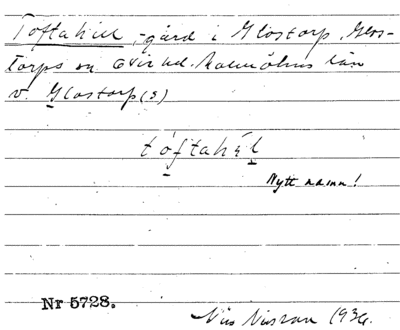 Toftahill, -gård i Glostorp, Glos-
torps sn Oxie hd. Malmöhus län
v. Glostorp (s)
tóftahil
Nytt namn!
Nr 5728.
Nils Nilsson 1934.